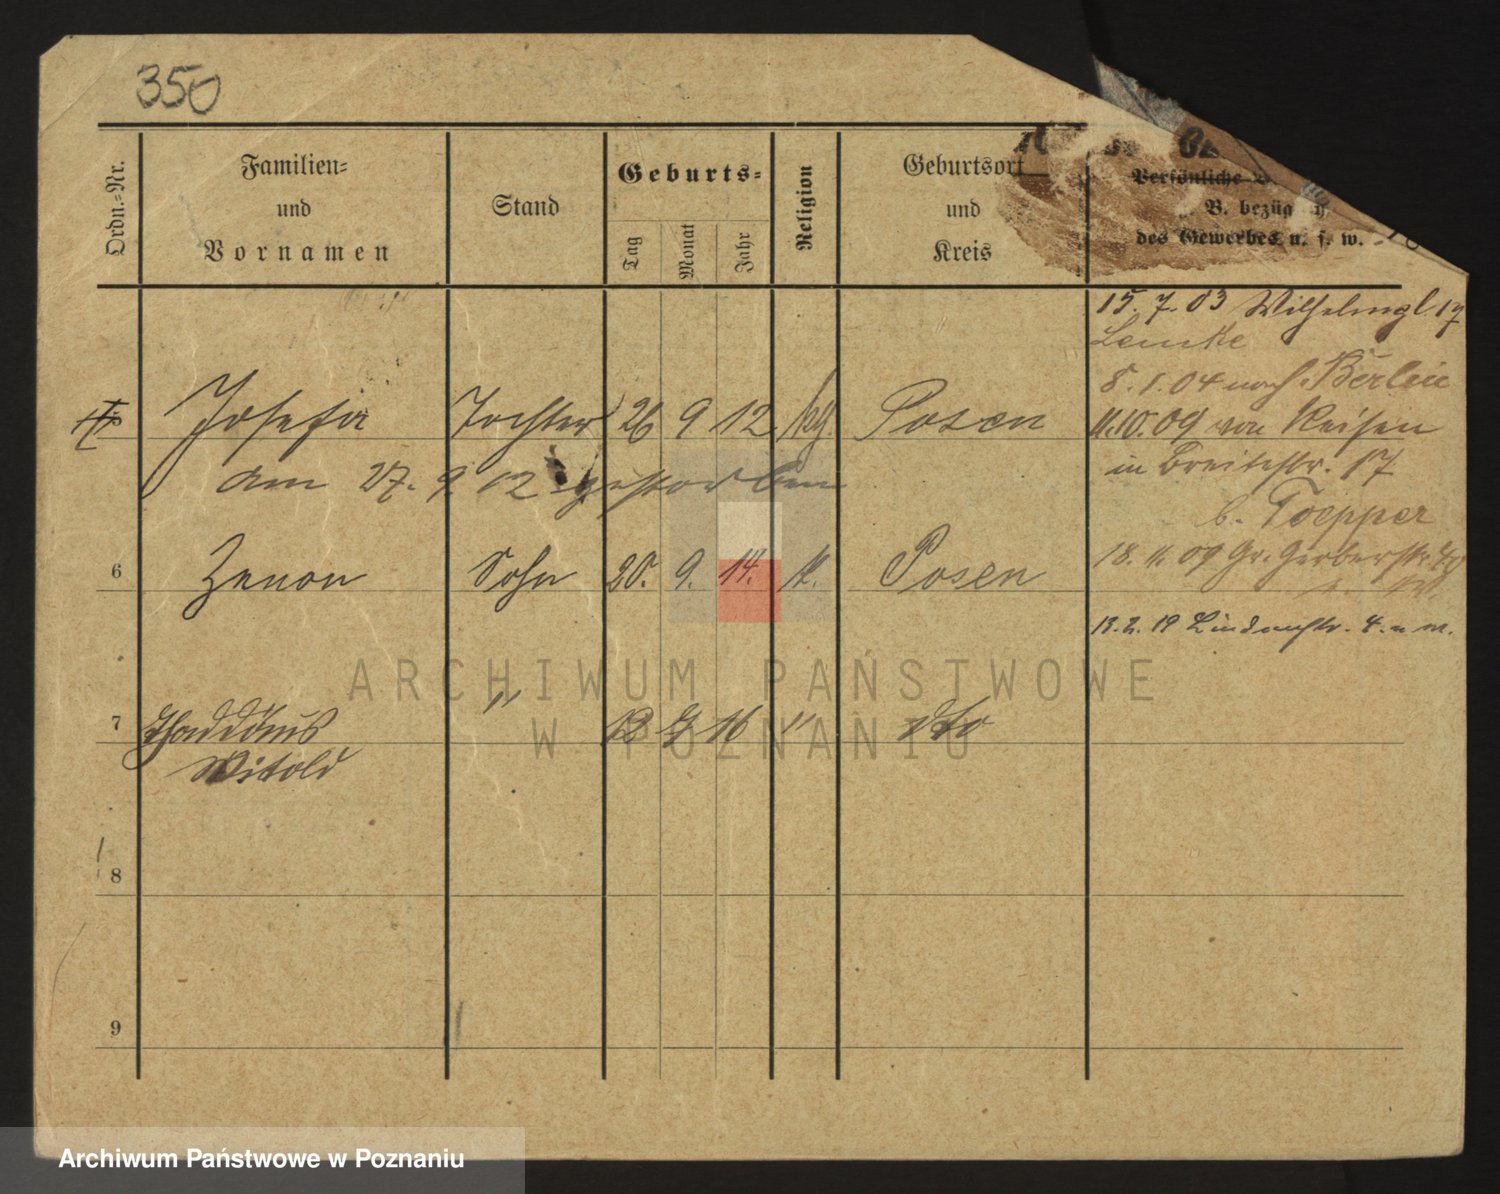 350
Ordn.=Nr.
Familien=
und
Vornamen
Stand
Geburts=
Tag
Monat
Jahr
Religion
Geburtsort
und
Kreis
Persönliche
z. B. bezüg
des Gewerbes u. s. w.
15. 7. 03 Wilhelmpl. 17
Lemke
8. 1. 04 nach Berlin
Josefa Tochter 26 9 12 kth. Posen
11.10.09 von Reisen
am 27. 9. 12 gestorben
in Breitestr. 17
b. Toepper
6 Zenon Sohn 20. 9. 14. k. Posen
18. 11. 09 Gr. Gerberstr. 40
13. 2. 19 Lindenstr. 4.
7 Thaddäus " 12 16 " dto
Witold
8
9
ARCHIWUM PAŃSTWOWE
W POZNANIU
Archiwum Państwowe w Poznaniu